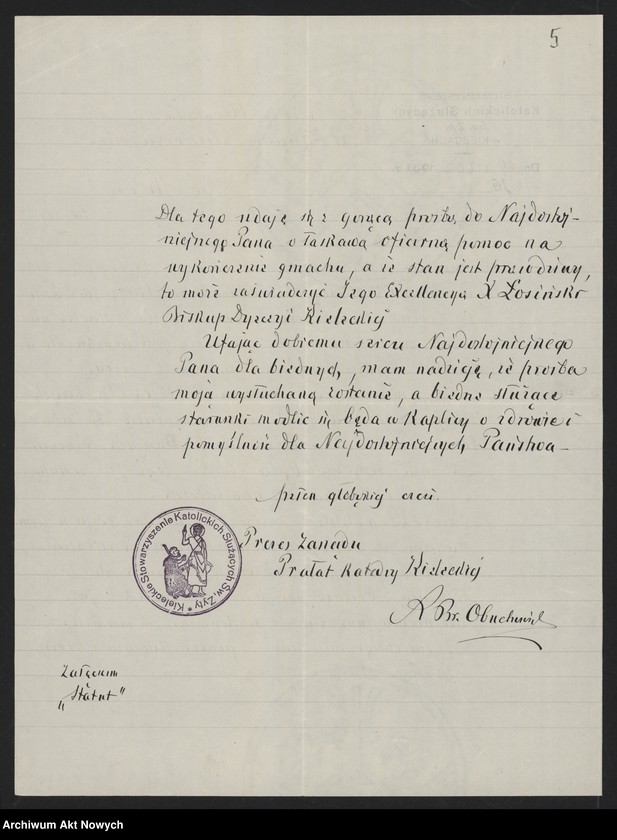 5
Dla tego udaję się z gorącą prośbą do Najdostoj-
niejnego Pana o łaskawą ofiarną pomoc na
wykończenie gmachu, a że stan jest prawdziwy,
to może zaświadczyć Jego Excellencya X Łosiński
Biskup Dyecezyi Kieleckiej
Ufając dobremu sercu Najdostojniejnego
Pana dla biednych, mam nadzieję, że prośba
moja wysłuchaną zostanie, a biedne służące
staruszki modlić się będą w Kaplicy o zdrowie i
pomyślność dla Najdostojniejszych Państwa –
pełen głębokiej czci.
Prezes Zarządu
Prałat Katedry Kieleckiej
Kieleckie Stowarzyszenie Katolickich Służących Św. Zyty
Załączam
„Statut"
Archiwum Akt Nowych